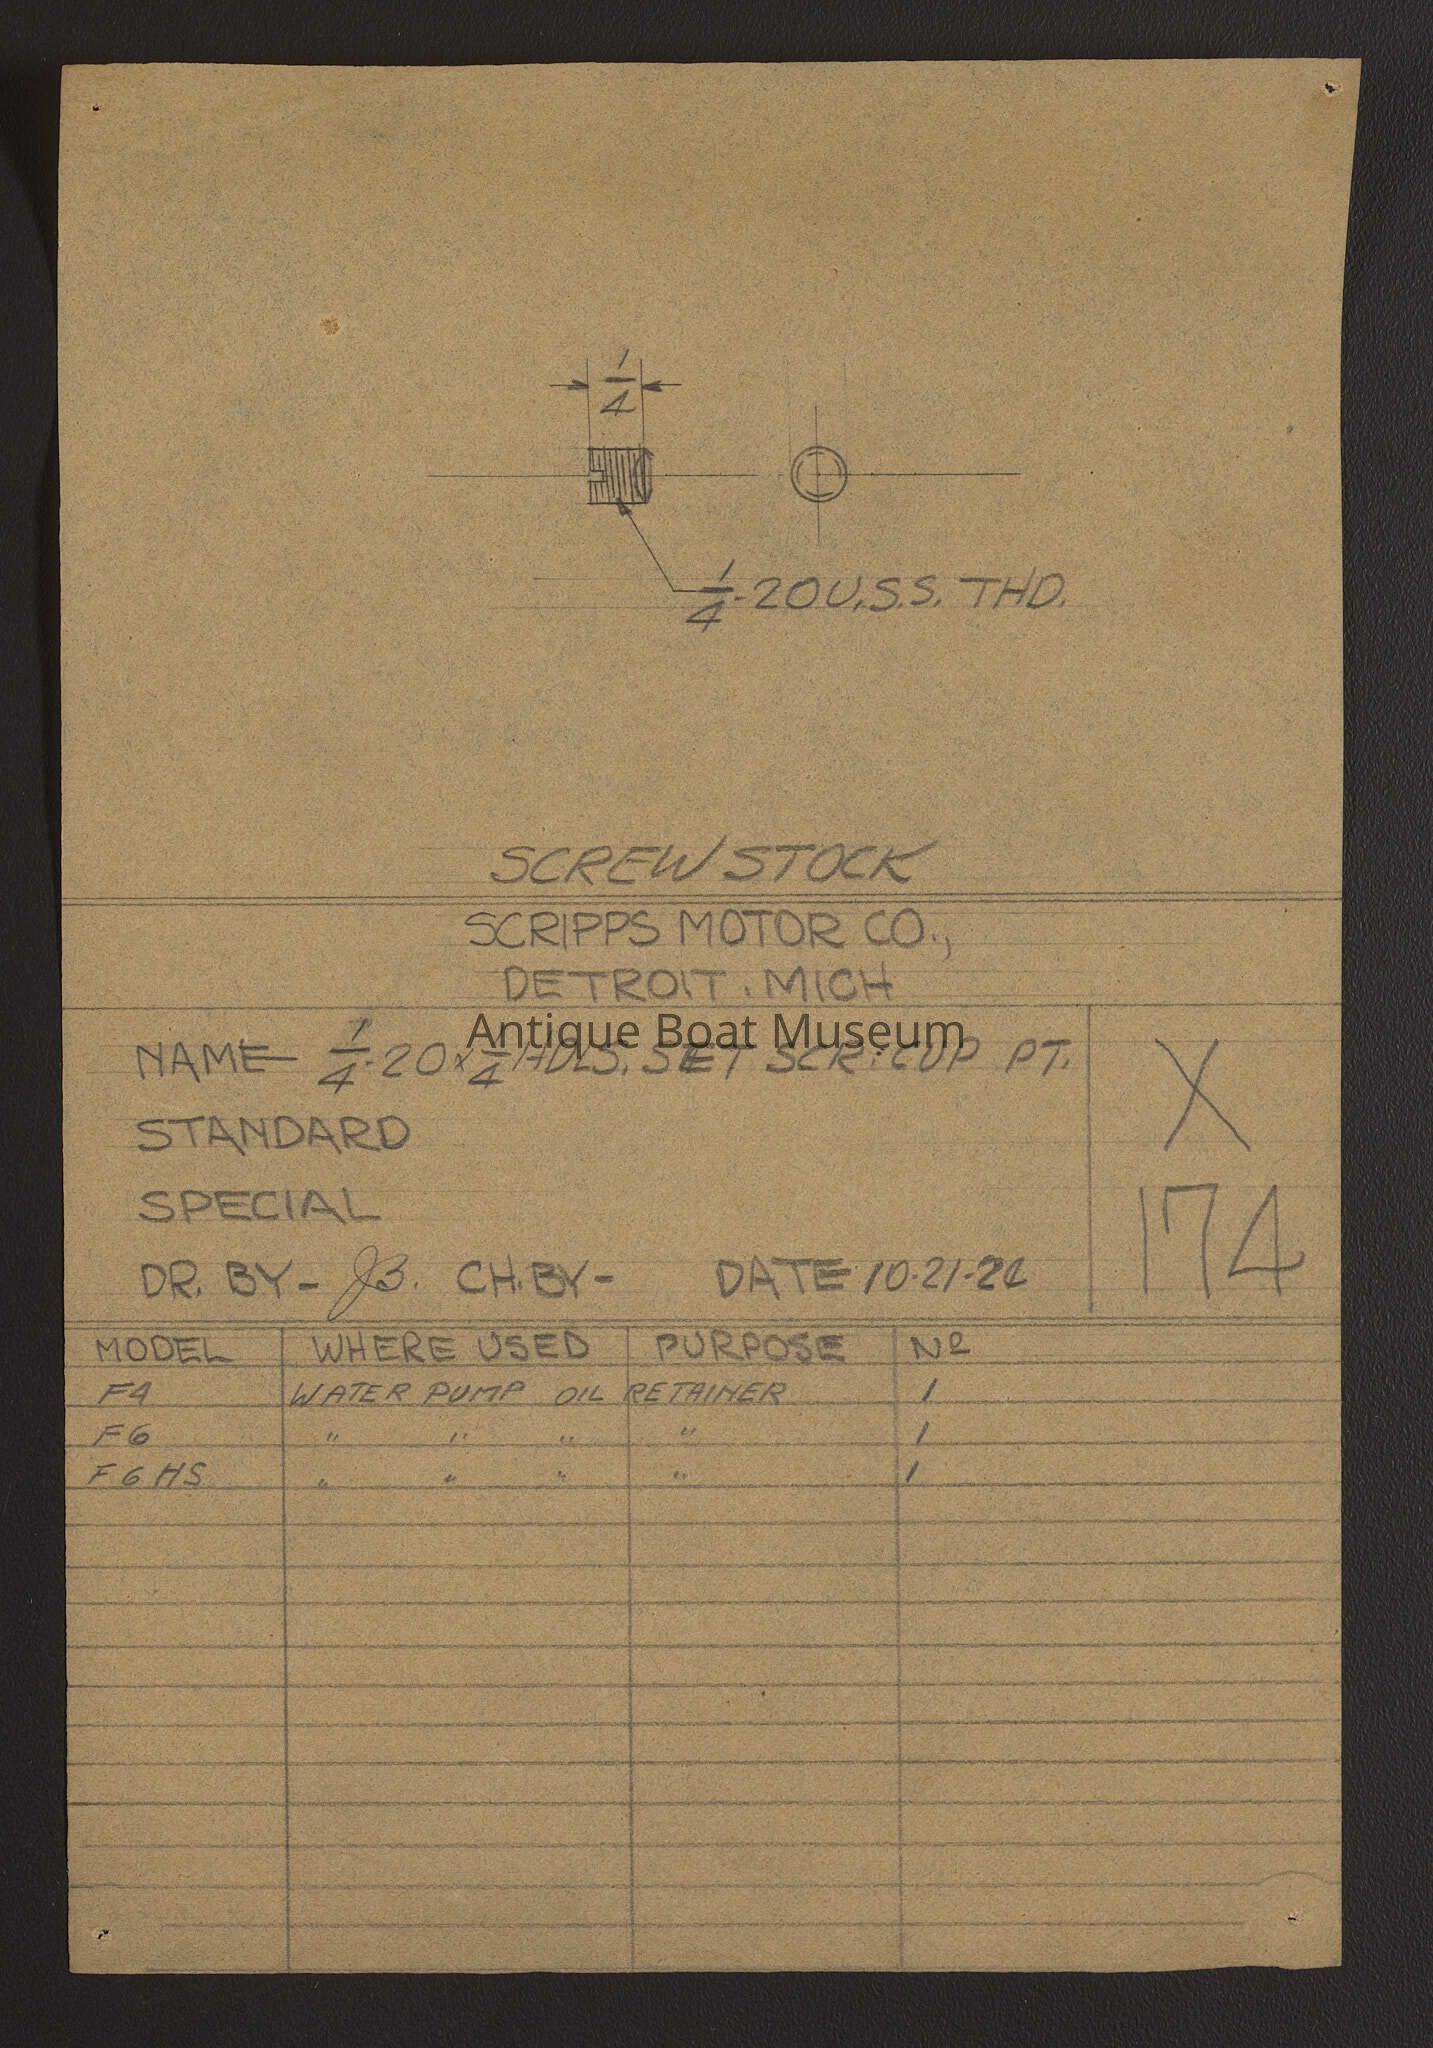 1/4
1/4-20 U.S.S. THD.
SCREW STOCK
SCRIPPS MOTOR CO.,
DETROIT. MICH
Antique Boat Museum
NAME 1/4-20 x 1/4 HDLS. SET SCR. CUP PT.
X
STANDARD
SPECIAL
174
DR. BY - JB. CH. BY - DATE 10-21-
MODEL WHERE USED PURPOSE No
F4 WATER PUMP OIL RETAINER 1
F6 " " " " 1
F6HS " " " " 1